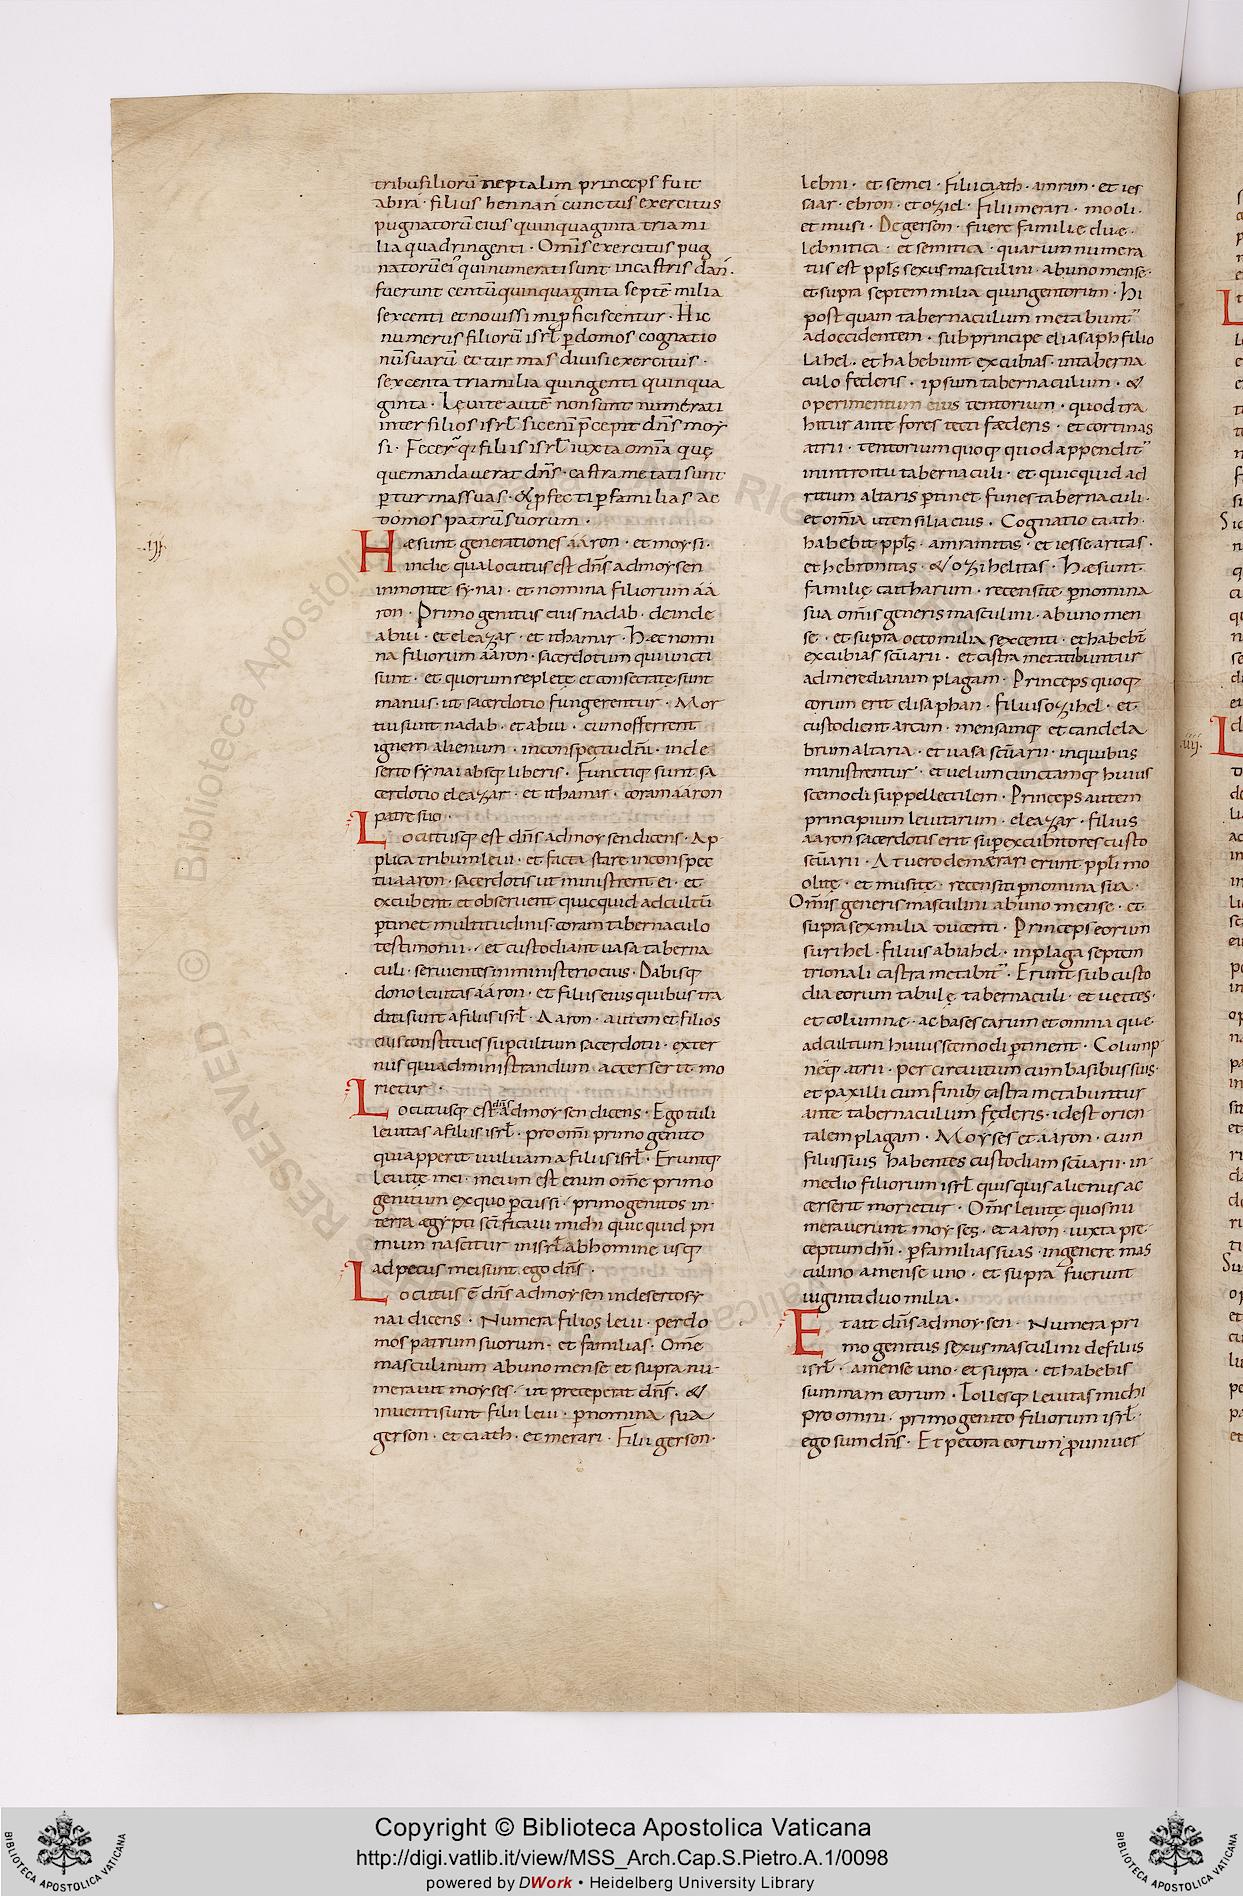 tribu filioru̅ neptalim princeps fuit
ahira · filius hennan cunctus exercitus
pugnatoru̅ eius quinquaginta tria mi
lia quadringenti · Om̅is exercitus pug
natoru̅ ei' qui numerati sunt in castris dan ·
fuerunt centu̅ quinquaginta septe̅ milia
sexcenti et novissimi ꝓficiscentur · Hic
numerus filioru̅ isrl̅ ꝑ domos cognatio
nu̅ suaru̅ et turmas divisi exercitus ·
sexcenta tria milia quingenti quinqua
ginta · Levite aute̅ non sunt numerati
inter filios isrl̅ sic eni̅ p̅cepit dn̅s moy
si · Fecer̅ q; filii isrl̅ iuxta om̅ia quę
que mandaverat dn̅s · castra metati sunt
ꝑ turmas suas · & ꝓfecti ꝑ familias ac
domos patru̅ suorum ·
·iij· Hæ sunt generationes aaron · et moysi ·
in die qua locutus est dn̅s ad moysen
in monte synai · et nomina filiorum aa
ron · Primogenitus eius nadab · deinde
abiu · et eleazar · et ithamar · Hæc nomi
na filiorum aaron · sacerdotum qui uncti
sunt · et quorum replete et consecrate sunt
manus · ut sacerdotio fungerentur · Mor
tui sunt nadab · et abiu · cum offerrent
ignem alienum · in conspectu dn̅i · in de
serto synai absq; liberis · Functiq; sunt sa
cerdotio eleazar · et ithamar · coram aaron
patre suo ·
Locutusq; est dn̅s ad moysen dicens · Ap
plica tribum levi · et facta stare in conspec
tu aaron · sacerdotis ut ministrent ei · et
excubent et observent quicquid ad cultu̅
ꝑtinet multitudinis · coram tabernaculo
testimonii · et custodiant vasa taberna
culi · servientes in ministerio eius · Dabisq;
dono levitas aaron · et filiis eius quibus tra
diti sunt a filiis isrl̅ · Aaron · autem et filios
eius constitues suꝑ cultum sacerdotii · exter
nus qui ad ministrandum accesserit mo
rietur ·
Locutusq; est dn̅s ad moysen dicens · Ego tuli
levitas a filiis isrl̅ · pro omni primogenito
qui apperit vulvam a filiis isrl̅ · Eruntq;
levitę mei · meum est enim om̅e primo
genitum ex quo ꝑcussi · primogenitos in
terra ęgypti sc̅ificavi michi quicquid pri
mum nascitur in isrl̅ ab homine usq;
ad pecus mei sunt ego dn̅s ·
Locutus e̅ dn̅s ad moysen in deserto sy
nai dicens · Numera filios levi · per do
mos patrum suorum · et familias · Om̅e
masculinum ab uno mense et supra nu
meravit moyses · ut preceperat dn̅s · &
inventi sunt filii levi · ꝑ nomina sua
gerson · et caath · et merari · Filii gerson ·
lebni · et semei · Filii caath · amram · et ies
saar · ebron · et oziel · Filii merari · mooli ·
et musi · De gerson · fuere familie due ·
lebnitica · et semitica · quarum numera
tus est ppl̅s sexus masculini · ab uno mense ·
et supra septem milia quingentorum · Hi
post quam tabernaculum metabunt''
ad occidentem · sub principe eliasaph filio
lahel · et habebunt excubias · in taberna
culo federis · ipsum tabernaculum · &
operimentum eius tentorium · quod tra
hitur ante fores tecti fæderis · et cortinas
atrii · tentorium quoq; quod appendit''
in introitu tabernaculi · et quicquid ad
ritum altaris ꝑtinet · funes tabernaculi ·
et om̅ia utensilia eius · Cognatio caath ·
habebit ppl̅s · amramitas · et iessearitas ·
et hebronitas · & ozihelitas · Hæ sunt
familię caatharum · recensite ꝑ nomina
sua om̅is generis masculini · ab uno men
se · et supra octo milia sexcenti · et habebt̅
excubias sc̅uarii · et castra metabuntur
ad meredianam plagam · Princeps quoq;
eorum erit elisaphan · filius ozihel · et
custodient arcam · mensamq; et candela
brum altaria · et vasa sc̅uarii · in quibus
ministrentur · et velum cunctamq; huius
scemodi suppellectilem · Princeps autem
principium levitarum · eleazar · filius
aaron sacerdotis erit suꝑ excubitores custo
sc̅uarii · At vero de merari erunt ppl̅i mo
olitę · et musitę · recensiti ꝑ nomina sua ·
Om̅is generis masculini ab uno mense · et
supra sex milia ducenti · Princeps eorum
surihel · filius abiahel · in plaga septem
trionali castra metabit'' · Erunt sub custo
dia eorum tabulę tabernaculi · et vectes ·
et columne · ac bases earum et omnia que
ad cultum huiuscemodi ꝑtinent · Colump
neq; atrii · per circuitum cum basibus suis ·
et paxilli cum finib; castra metabuntur
ante tabernaculum fęderis · id est orien
talem plagam · Moyses et aaron · cum
filiis suis habentes custodiam sc̅uarii · in
medio filiorum isrl̅ quisquis alienus ac
cerserit morietur · Om̅s levitę quos nu
meraverunt moyses · et aaron · iuxta pre
ceptum dn̅i · ꝑ familias suas · in genere mas
culino a mense uno · et supra fuerunt
viginti duo milia ·
Et ait dn̅s ad moysen · Numera pri
mogenitus sexus masculini de filiis
isrl̅ · a mense uno · et supra · et habebis
summam eorum · Tollesq; levitas michi
pro omni · primogenito filiorum isrl̅ ·
ego sum dn̅s · Et pecora eorum ꝓ univer
·iiij·
Copyright © Biblioteca Apostolica Vaticana
http://digi.vatlib.it/view/MSS_Arch.Cap.S.Pietro.A.1/0098
powered by DWork • Heidelberg University Library